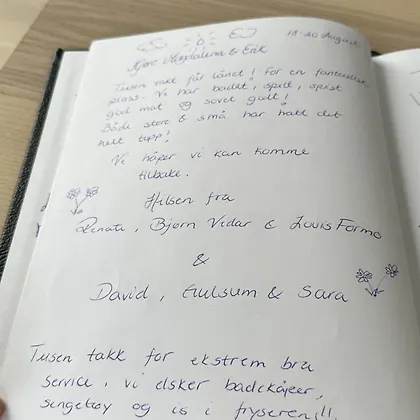 18-20 August
Kjære Magdalena & Erik
Tusen takk for lånet! For en fantastisk
plass. Vi har badet, spilt, spist
god mat og sovet godt!
Både store & små har hatt det
helt topp!
Vi håper vi kan komme
tilbake.
Hilsen fra
Renate, Bjørn Vidar & Louis Formo
&
David, Gulsum & Sara
Tusen takk for ekstrem bra
service, vi elsker badekåper,
sengetøy og is i fryseren!!